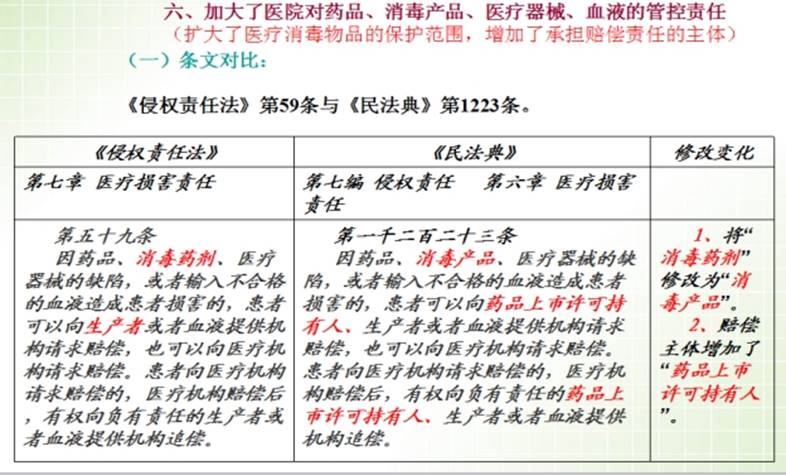 六、加大了医院对药品、消毒产品、医疗器械、血液的管控责任
（扩大了医疗消毒物品的保护范围，增加了承担赔偿责任的主体）
（一）条文对比：
《侵权责任法》第59条与《民法典》第1223条。
《侵权责任法》
《民法典》
修改变化
第七章 医疗损害责任
第七编 侵权责任 第六章 医疗损害
责任
第五十九条
因药品、消毒药剂、医疗
器械的缺陷，或者输入不合格
的血液造成患者损害的，患者
可以向生产者或者血液提供机
构请求赔偿，也可以向医疗机
构请求赔偿。患者向医疗机构
请求赔偿的，医疗机构赔偿后
，有权向负有责任的生产者或
者血液提供机构追偿。
第一千二百二十三条
因药品、消毒产品、医疗器械的缺
陷，或者输入不合格的血液造成患者
损害的，患者可以向药品上市许可持
有人、生产者或者血液提供机构请求
赔偿，也可以向医疗机构请求赔偿。
患者向医疗机构请求赔偿的，医疗机
构赔偿后，有权向负有责任的药品上
市许可持有人、生产者或者血液提供
机构追偿。
1、将“
消毒药剂”
修改为“消
毒产品”。
2、赔偿
主体增加了
“药品上市
许可持有人
”。